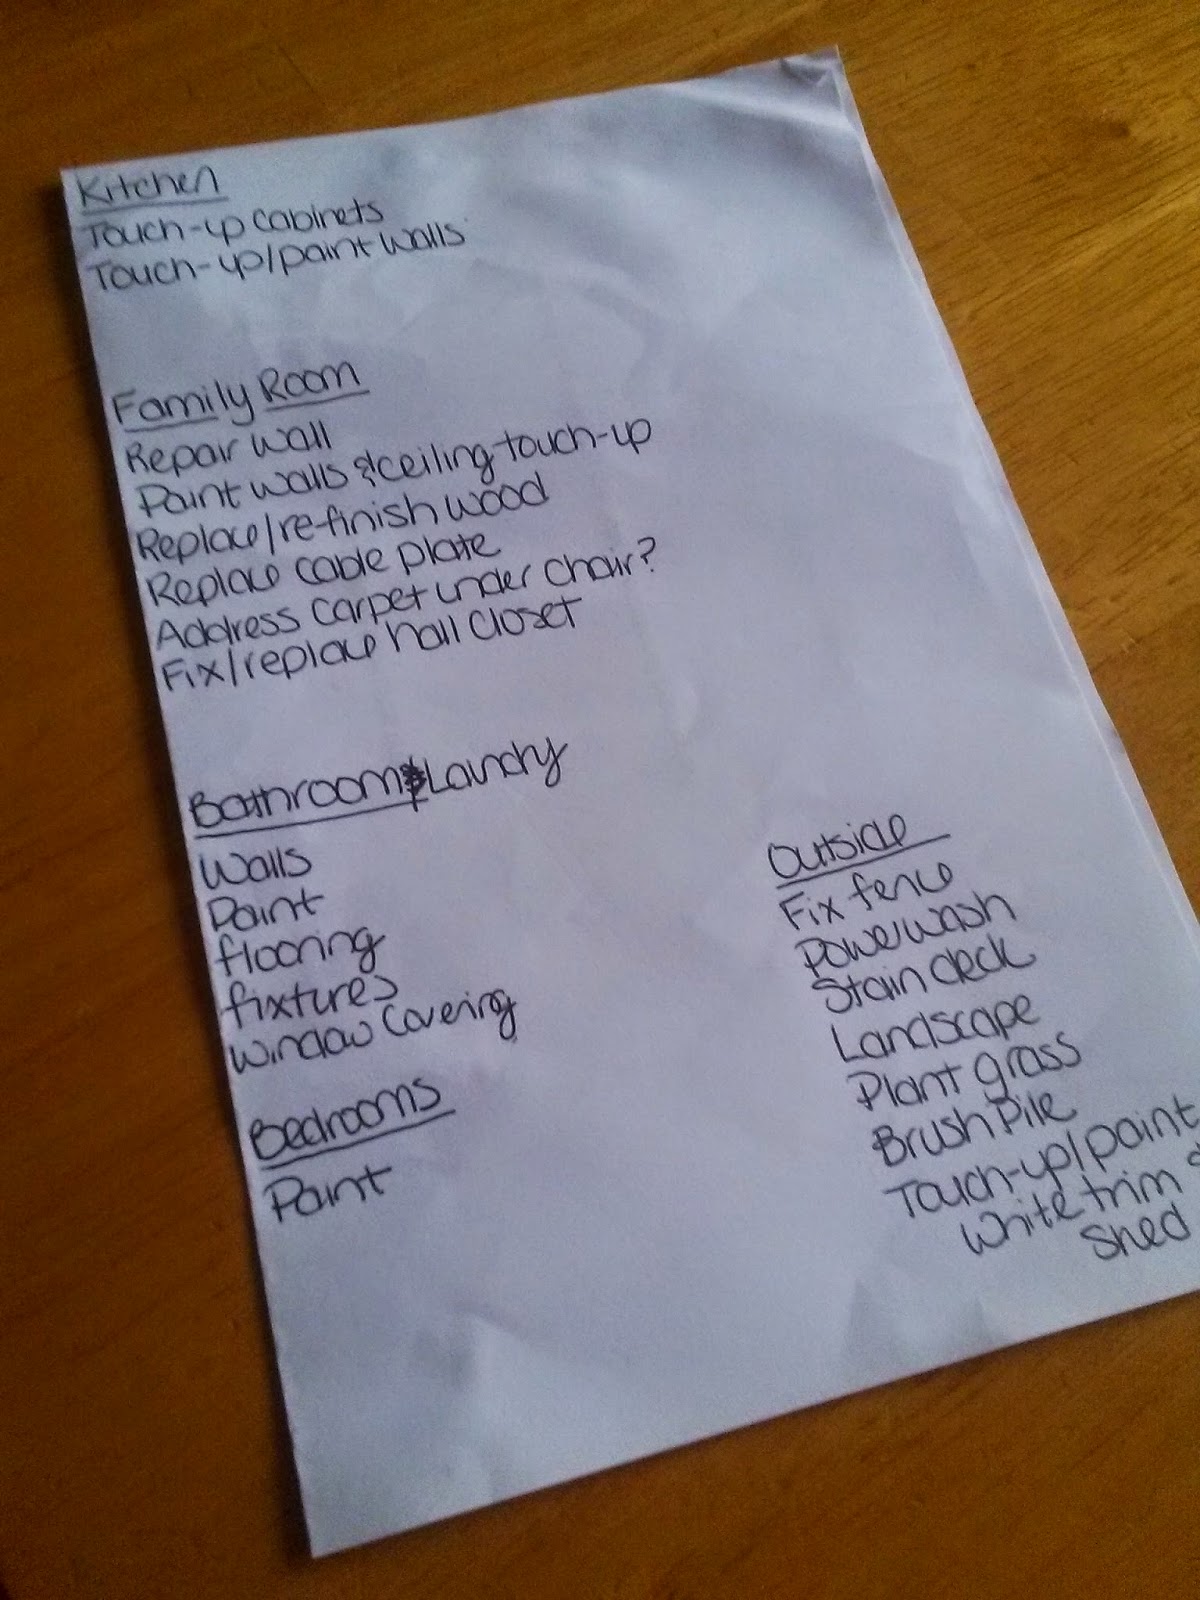 Kitchen
Touch-up Cabinets
Touch-up/paint walls
Family Room
Repair wall
Paint walls & ceiling touch-up
Replace/re-finish wood
Replace cable plate
Address carpet under chair?
Fix/replace hall closet
Bathroom & Laundry
Walls
Paint
flooring
fixtures
window covering
Bedrooms
Paint
Outside
Fix fence
Powerwash
Stain deck
Landscape
Plant grass
Brush Pile
Touch-up/paint
white trim
Shed